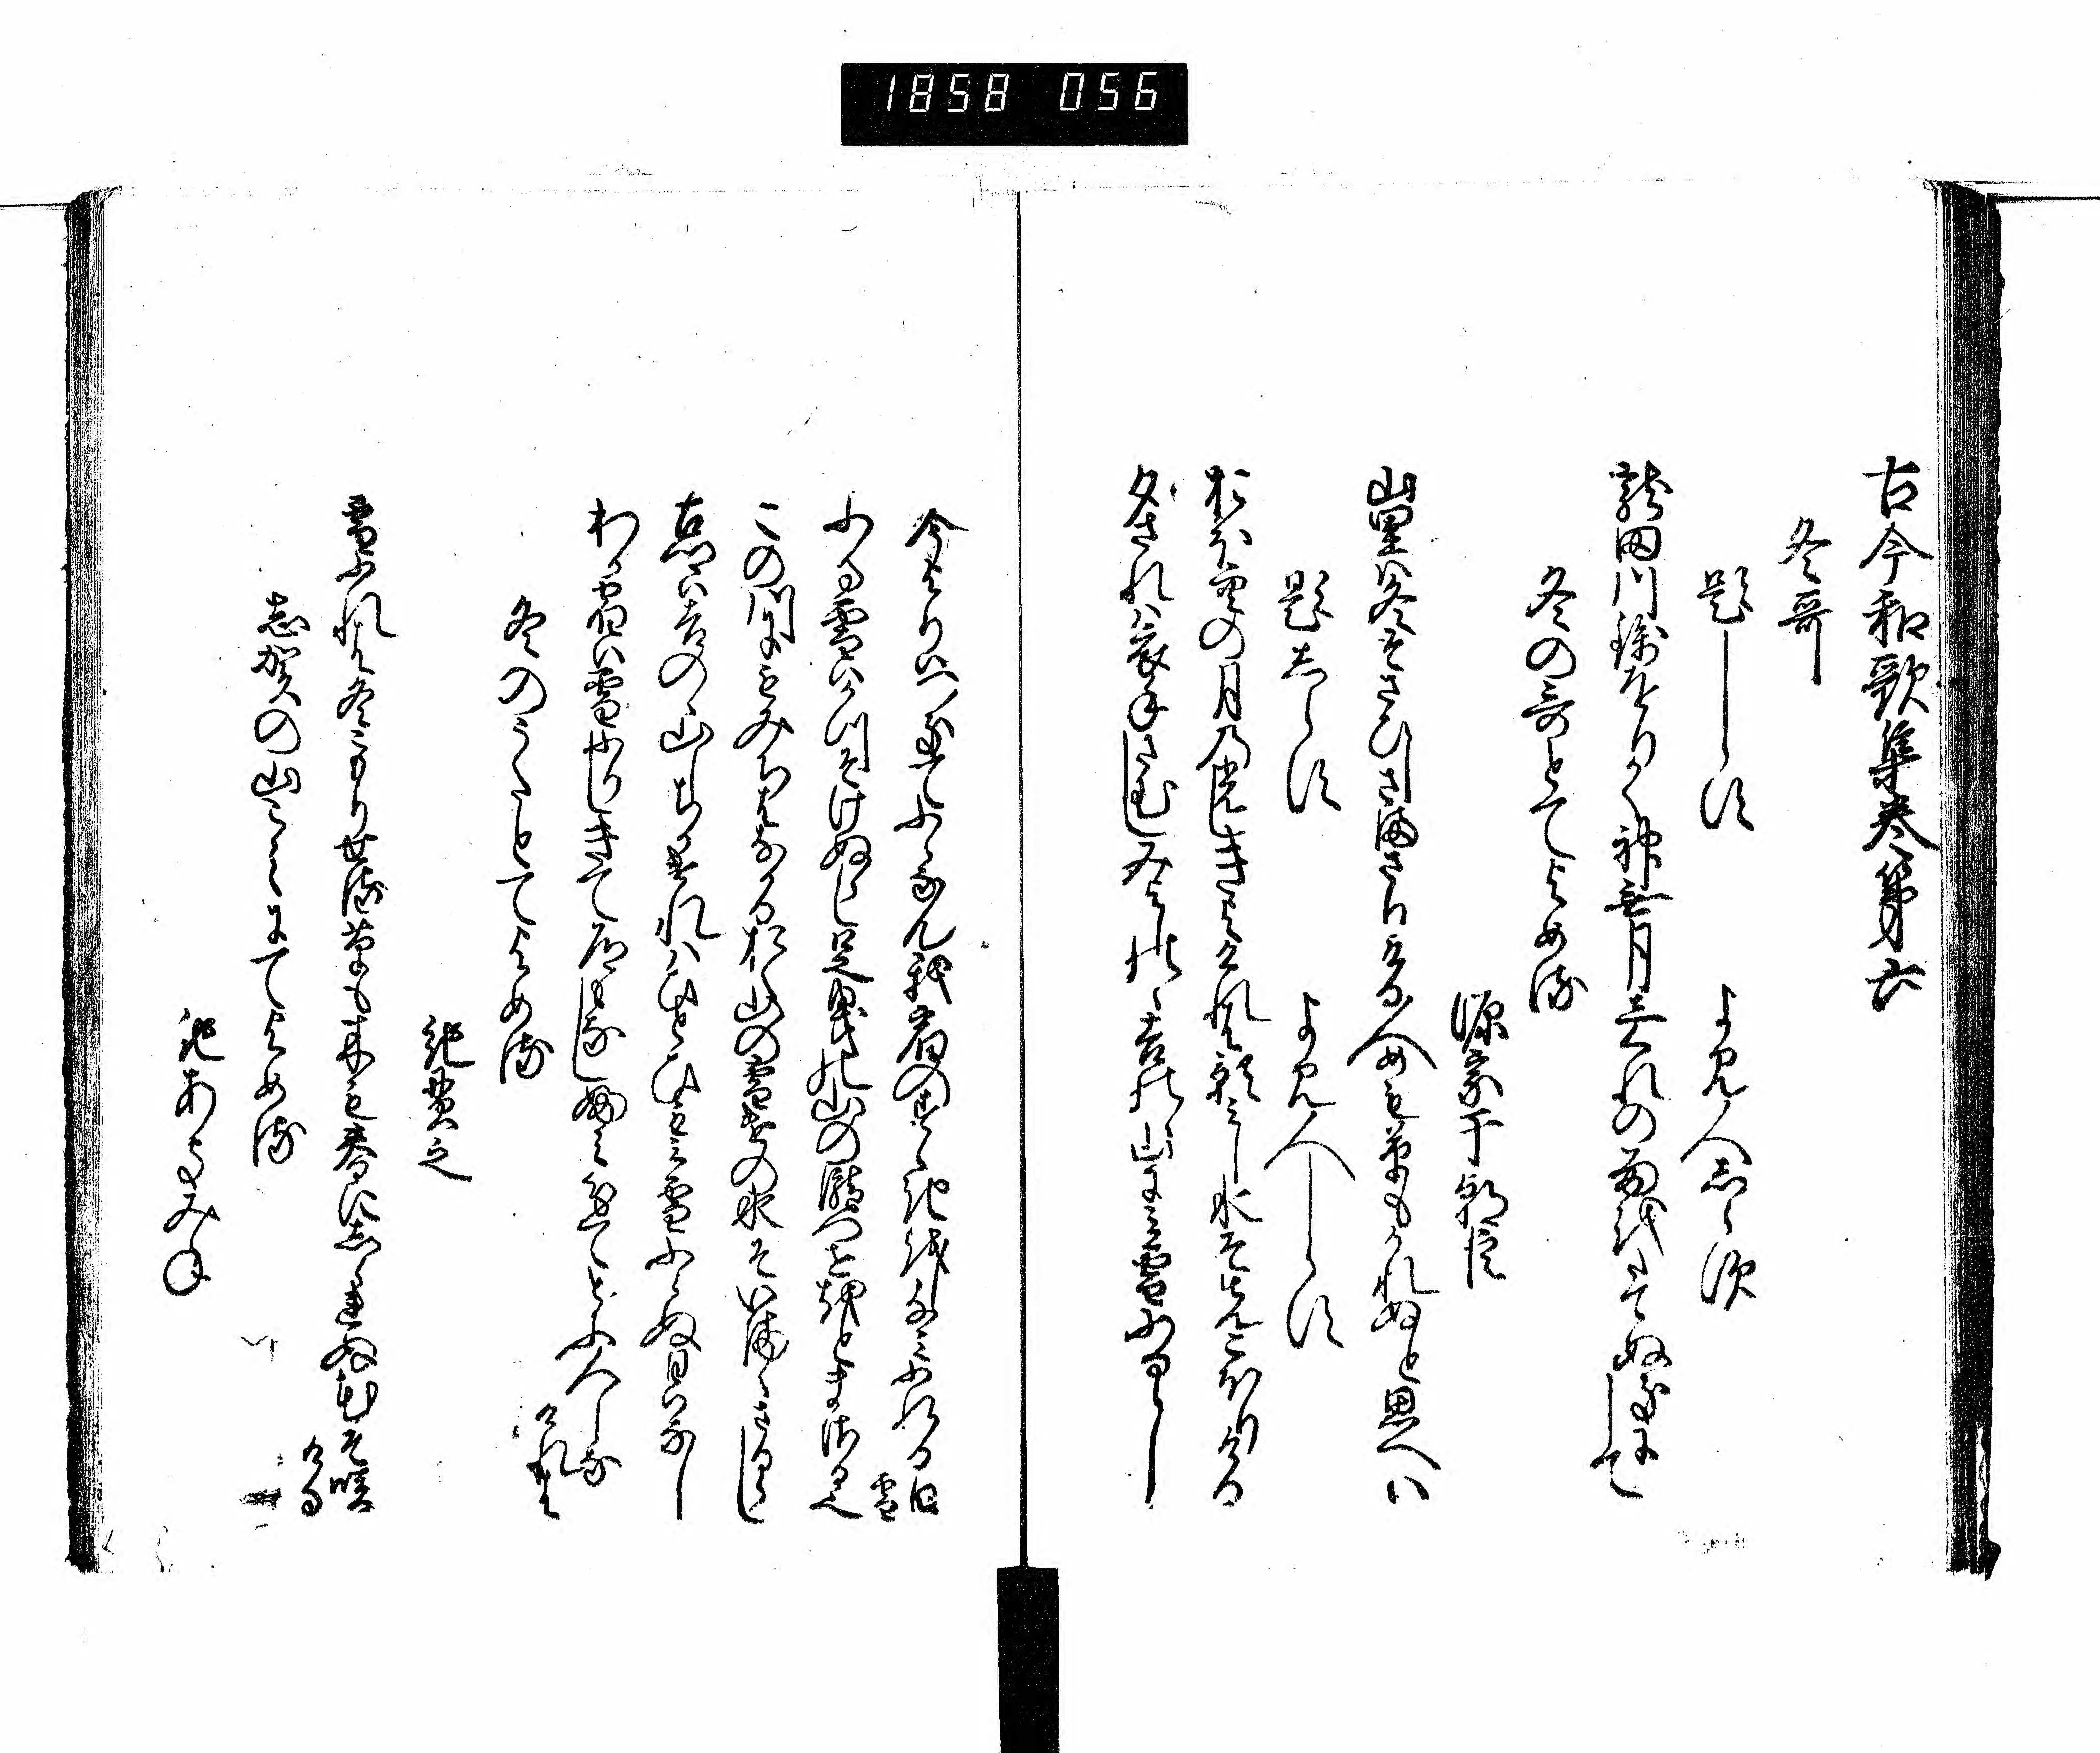 1858 056
古今和歌集巻第六
冬哥
題しらす　よみ人志らす
龍田川錦をりかく神無月しくれの雨をたてぬきにして
冬の哥とてよめる
源宗于朝臣
山里は冬そさひしさまさりける人めも草もかれぬと思へは
題しらす　よみ人しらす
おほ空の月の光しきよけれは影みし水そまつこほりける
夕されは衣手さむしみよしのゝ吉野の山にみ雪ふるらし
今よりはつきてふらなん我宿のすゝきをしなみふれる白
雪
ふる雪はかつそけぬらし足曳の山の瀧つせ音まさる也
この川にもみちはなかる奥山の雪けの水そいまゝさるらし
古郷は吉野の山しちかけれはひとひもみ雪ふらぬ日はなし
わか宿は雪ふりしきて道もなしふみわけてとふ人しな
けれは
冬のうたとてよめる
紀貫之
雪ふれは冬こもりせる草も木も春に志られぬ花そ咲
ける
志賀の山こえにてよめる
紀あきみね